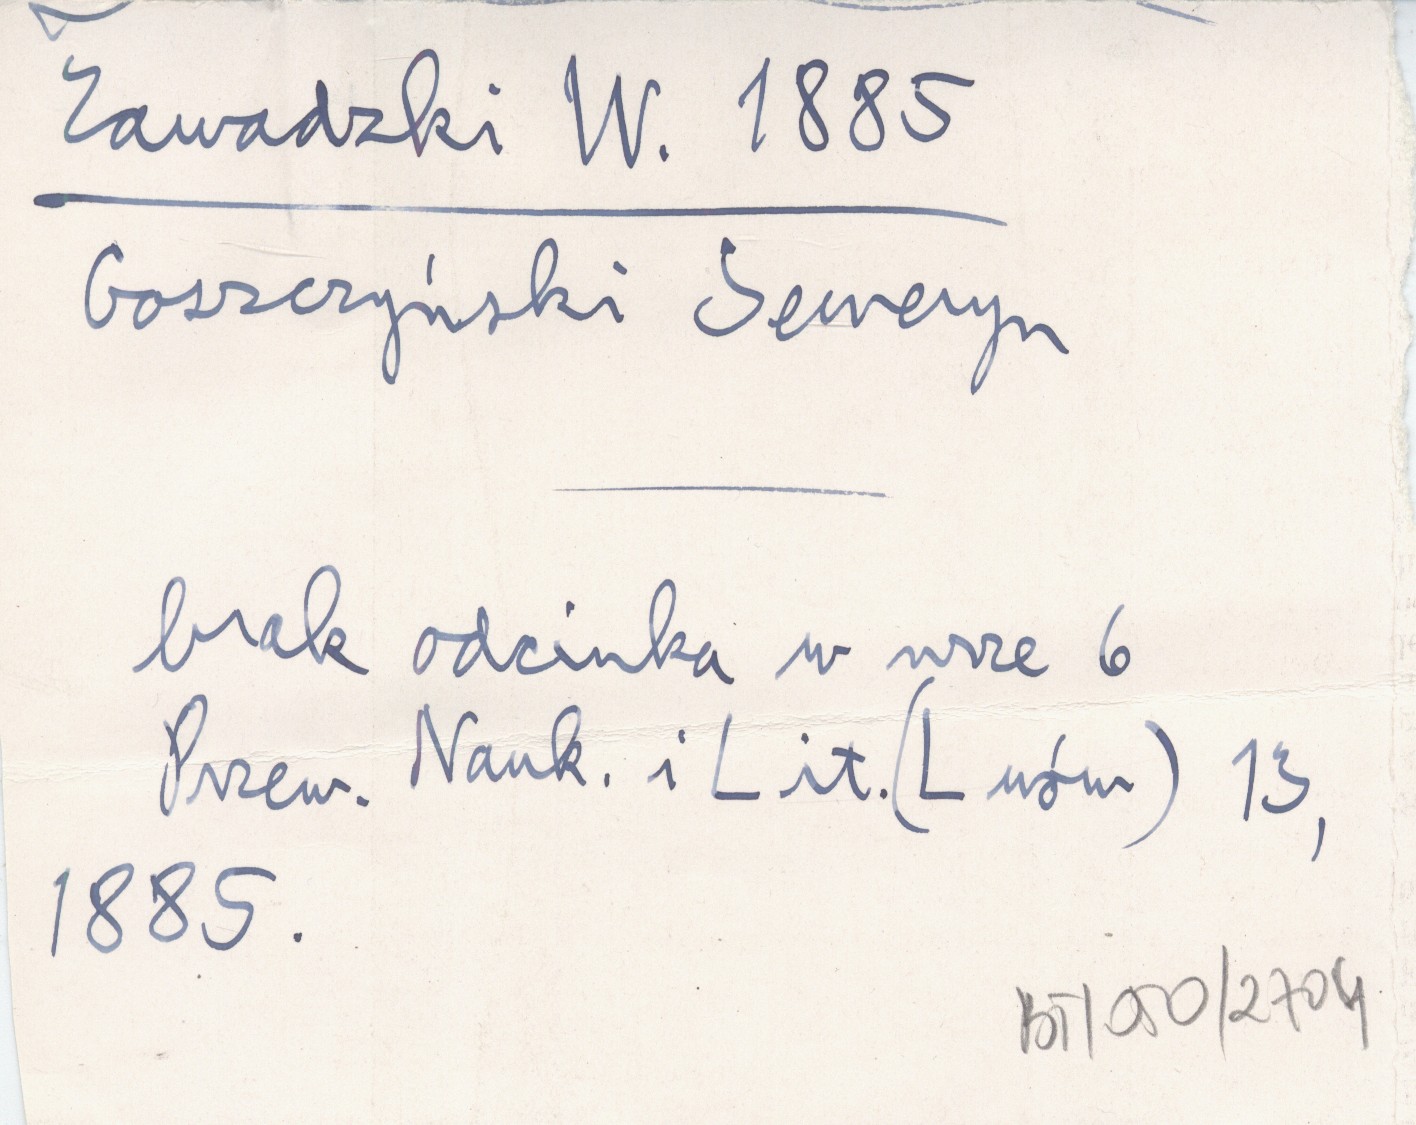 Zawadzki W. 1885
Goszczyński Seweryn
brak odcinka w nrze 6
Przew. Nauk. i Lit. (Lwów) 13,
1885.
BT/050/2704